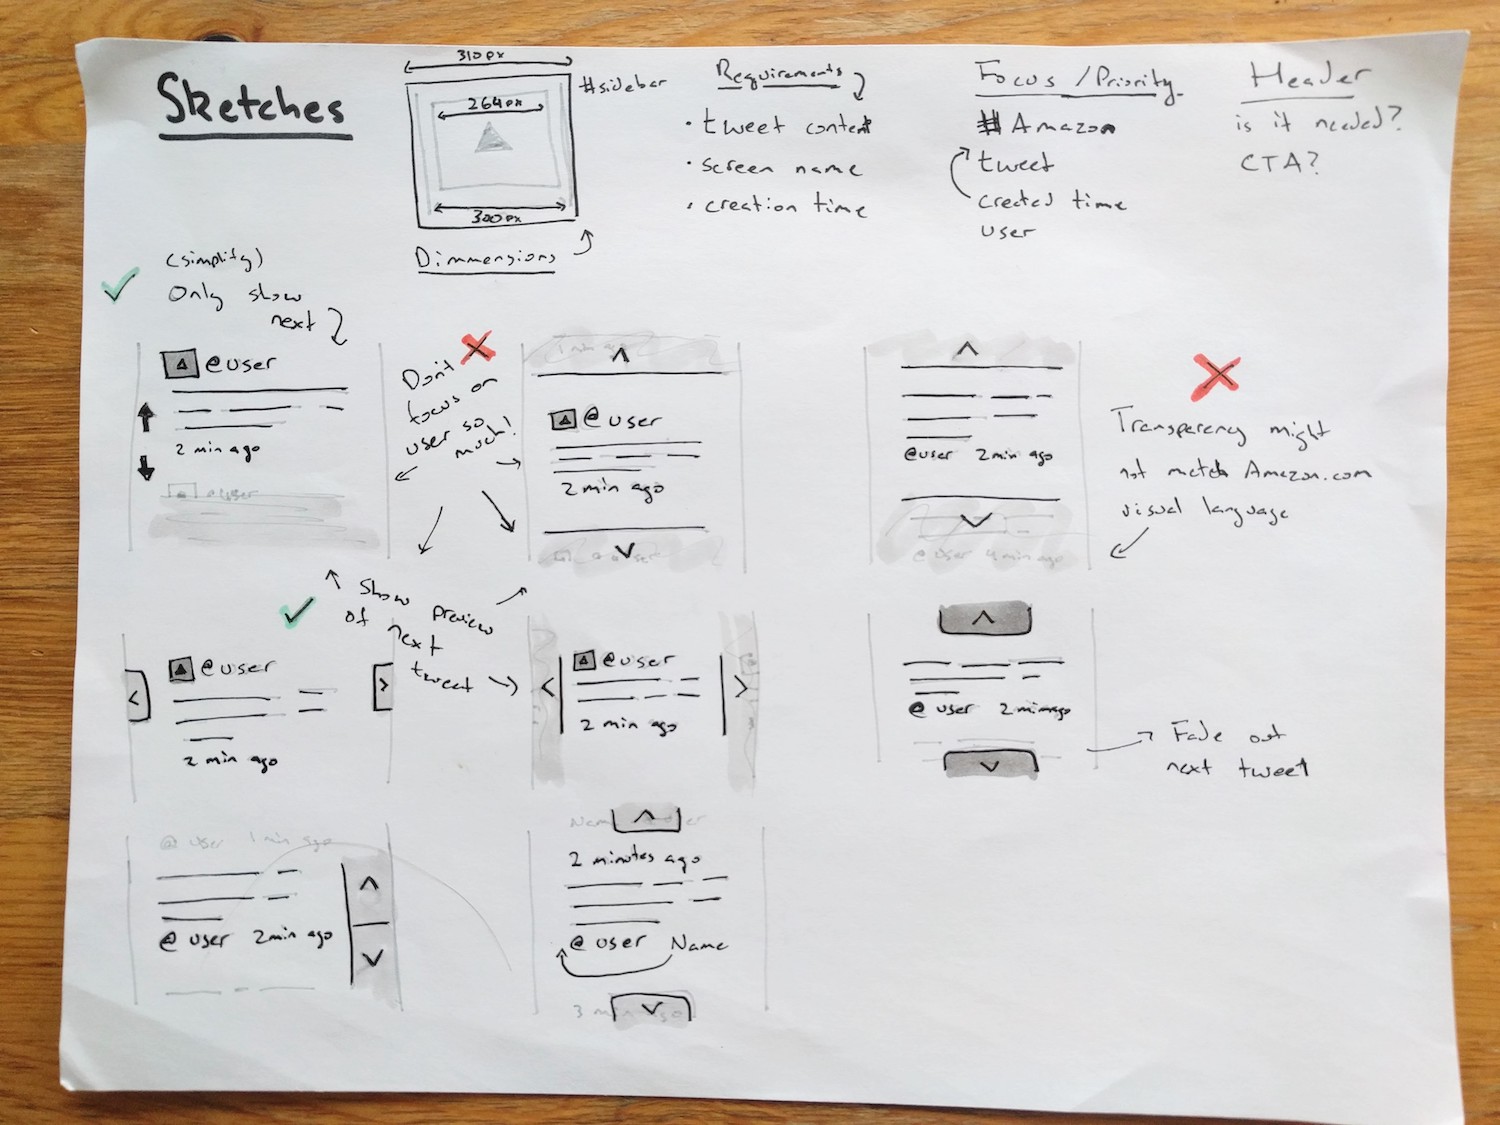 Sketches
310px
264px
300px
#sidebar
Dimmensions
Requirements
· tweet content
· screen name
· creation time
Focus / Priority
# Amazon
tweet
created time
user
Header
is it needed?
CTA?
(simplify)
Only show
next
@user
2 min ago
@user
Don't
focus on
user so
much!
1 min ago
@user
2 min ago
@user 2 min ago
@user 4 min ago
Transparency might
not match Amazon.com
visual language
Show preview
of next
tweet
@user
2 min ago
@user
2 min ago
@user 2 min ago
Fade out
next tweet
@user 1 min ago
@user 2 min ago
2 minutes ago
@user Name
3 min ago